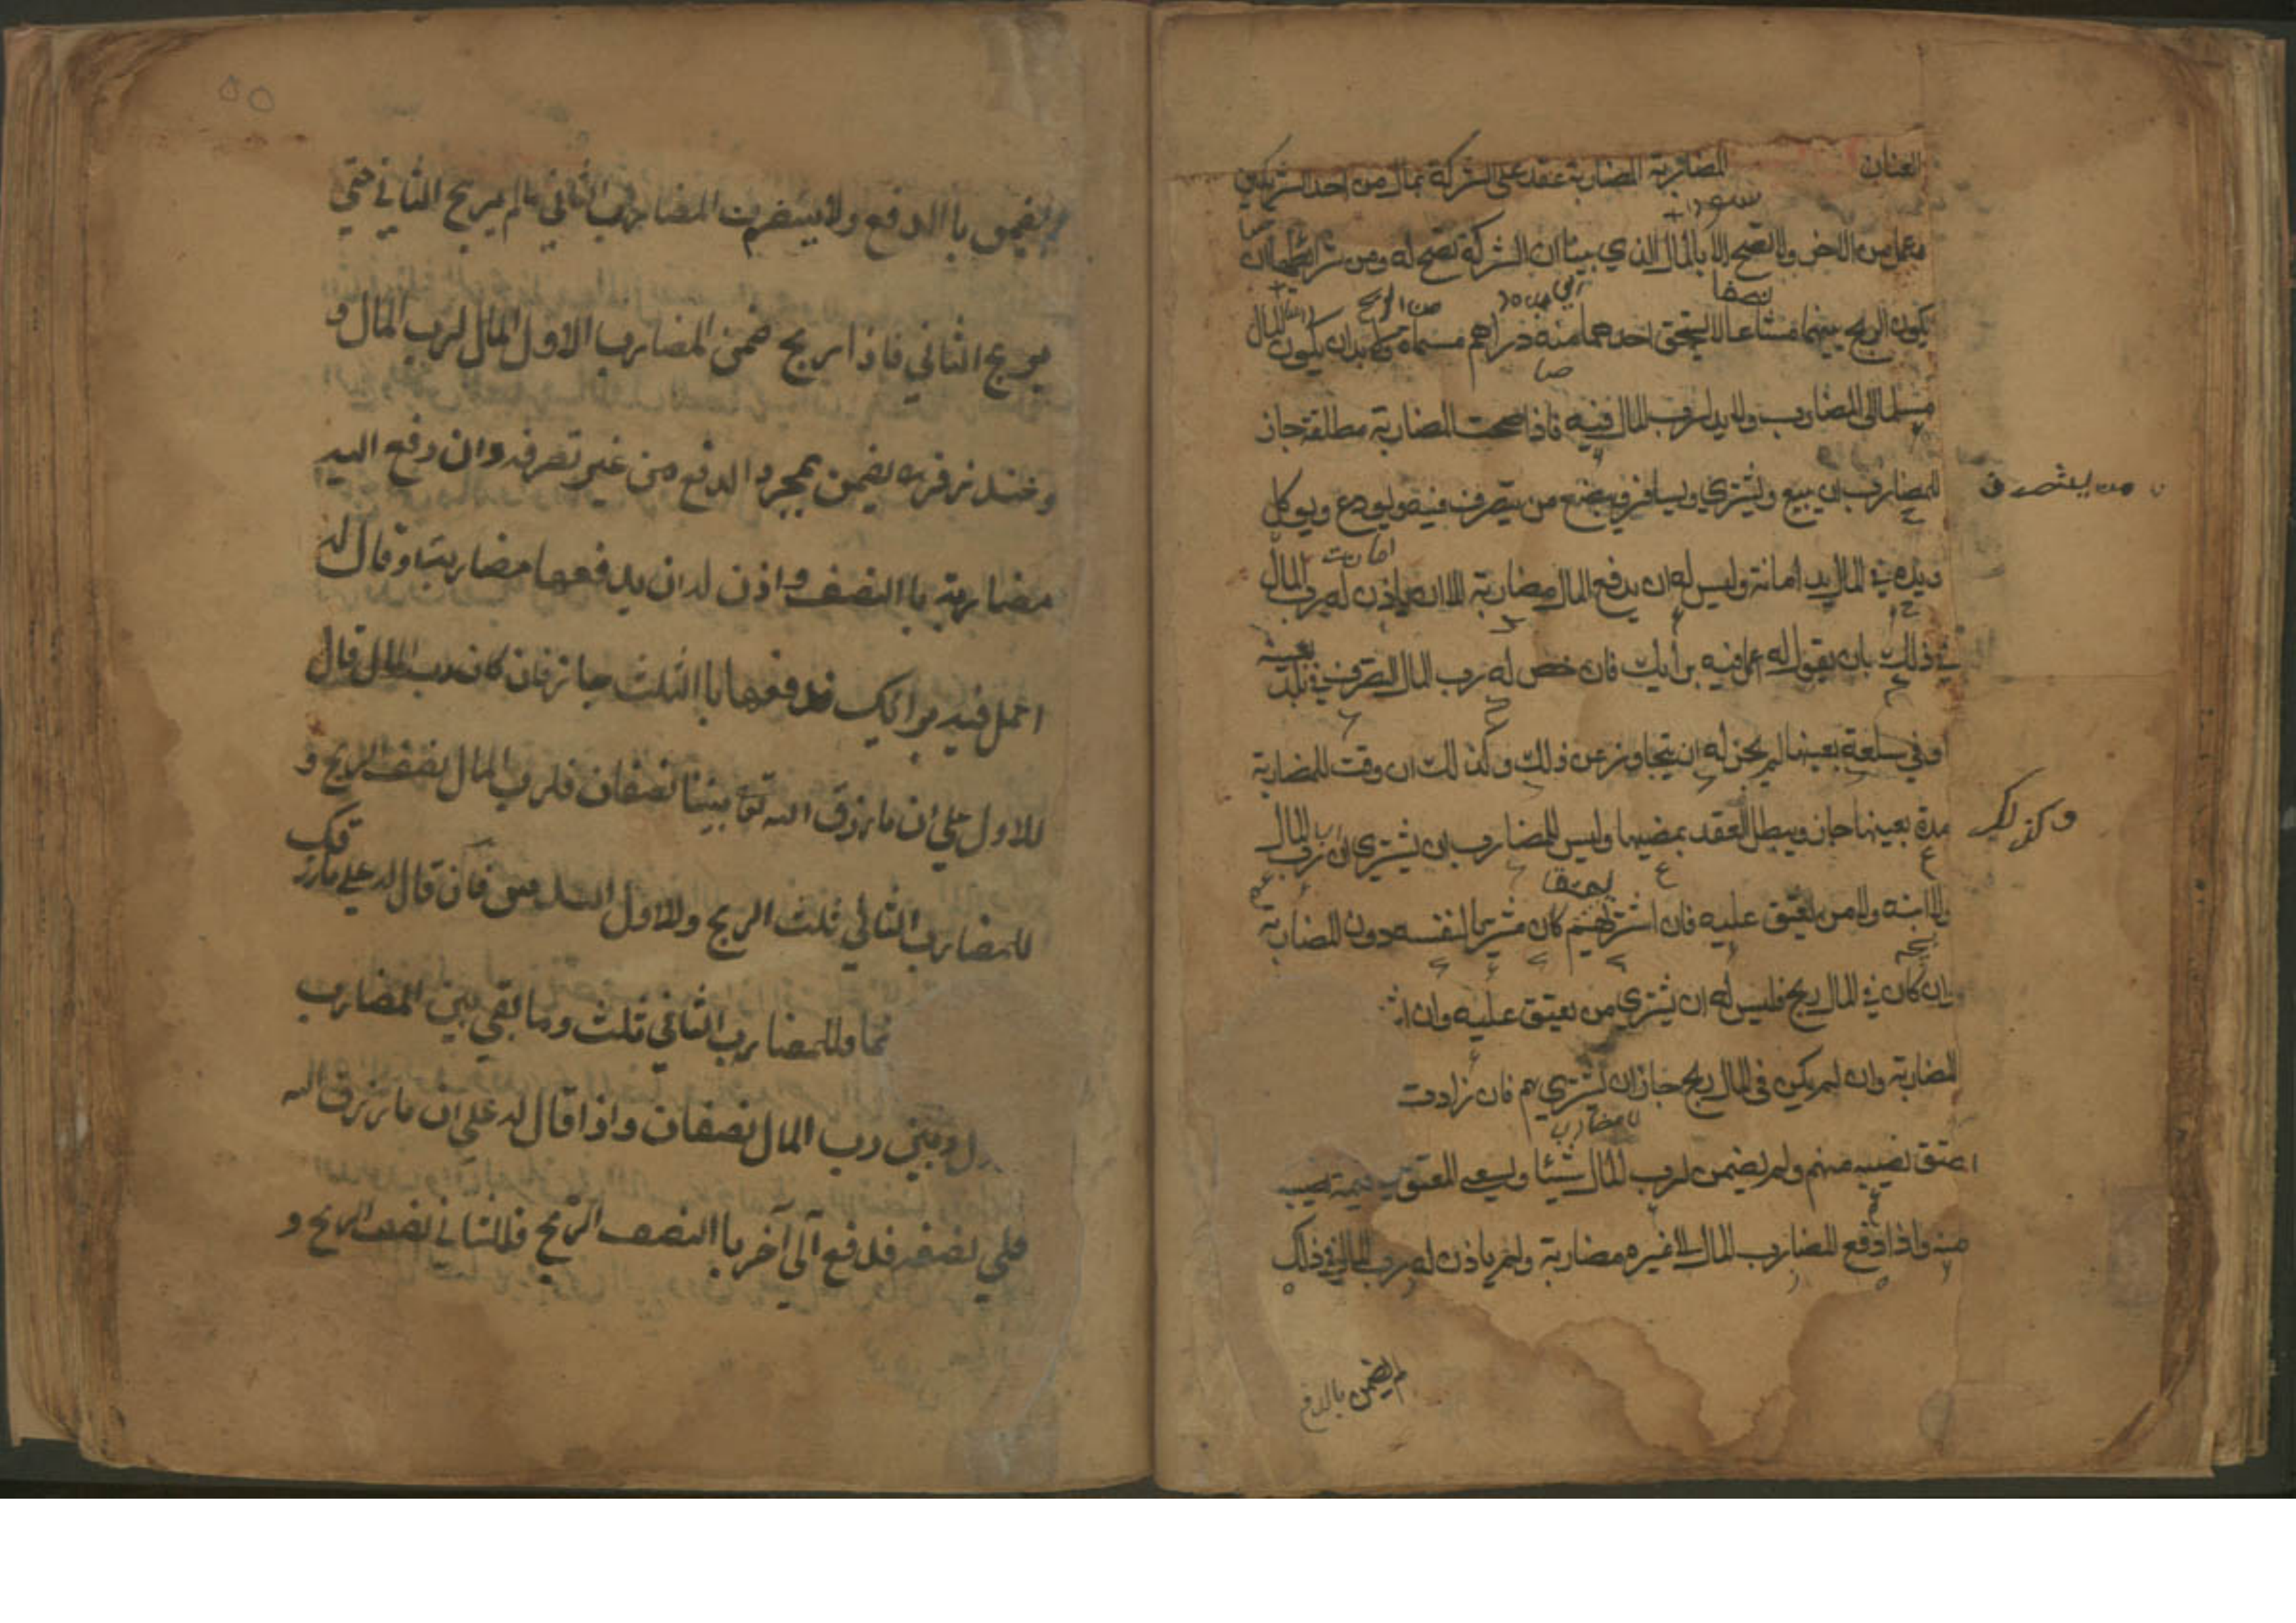 العنان المضاربة المضاربة عقد على الشركة بمال من احد الشريكين
وعمل من الاخر ولا تصح الا بالمال الذي بينا ان الشركة تصح له ومن شرائطها ان
يكون الربح بينهما مشاعا لا يستحق احدهما منه دراهم مسماة ولابد ان يكون المال
مسلما الى المضارب ولا يد لرب المال فيه فاذا صحت المضاربة مطلقة جاز
للمضارب ان يبيع ويشتري ويسافر ويبضع من يتصرف فيه ويودع ويوكل
ويده في المال يد امانة وليس له ان يدفع المال مضاربة الا ان ياذن له رب المال
في ذلك بان يقول له اعمل فيه برأيك فان خص له رب المال التصرف في بلد
بعينه
او في سلعة بعينها لم يجز له ان يتجاوز عن ذلك وكذلك ان وقت للمضاربة
مدة بعينها جاز ويبطل العقد بمضيها وليس للمضارب ان يشتري اب رب المال
وكذلك
ولا ابنه ولا من يعتق عليه فان اشتراهم كان مشتريا لنفسه دون المضاربة
وان كان في المال ربح فليس له ان يشتري من يعتق عليه وان اش
المضاربة وان لم يكن في المال ربح جاز ان يشتريهم فان زادت
عتق نصيبه منهم ولم يضمن لرب المال شيئا ويسعى المعتق في قيمة نصيبه
منه واذا دفع المضارب المال لا غيره مضاربة ولم ياذن له رب المال في ذلك
لم يضمن بالدفع
لم يضمن باالدفع ولا يتصرف المضارب الثاني مالم يربح الثاني حتي
يربح الثاني فاذا ربح ضمن المضارب الاول المال لرب المال و
وعند زفر ره يضمن بمجرد الدفع من غير تصرفه وان دفع اليه
مضاربة باالنصف واذن له ان يدفعها مضاربتة وقال له
اعمل فيه برائك فدفعها باالثلث جاز فان كان رب المال قال
للاول علي ان ما رزق الله تع بيننا نصفان فلرب المال نصف الربح و
للمضارب الثاني ثلث الربح وللاول السدس فان قال له علي ما رز
قك
فما وللمضارب الثاني ثلث وما بقي بين المضارب
ول وبين رب المال نصفان واذا قال له علي ان ما رزق الله
فلي نصفه فدفع الي آخر باالنصف الربح فللثاني نصف الربح و